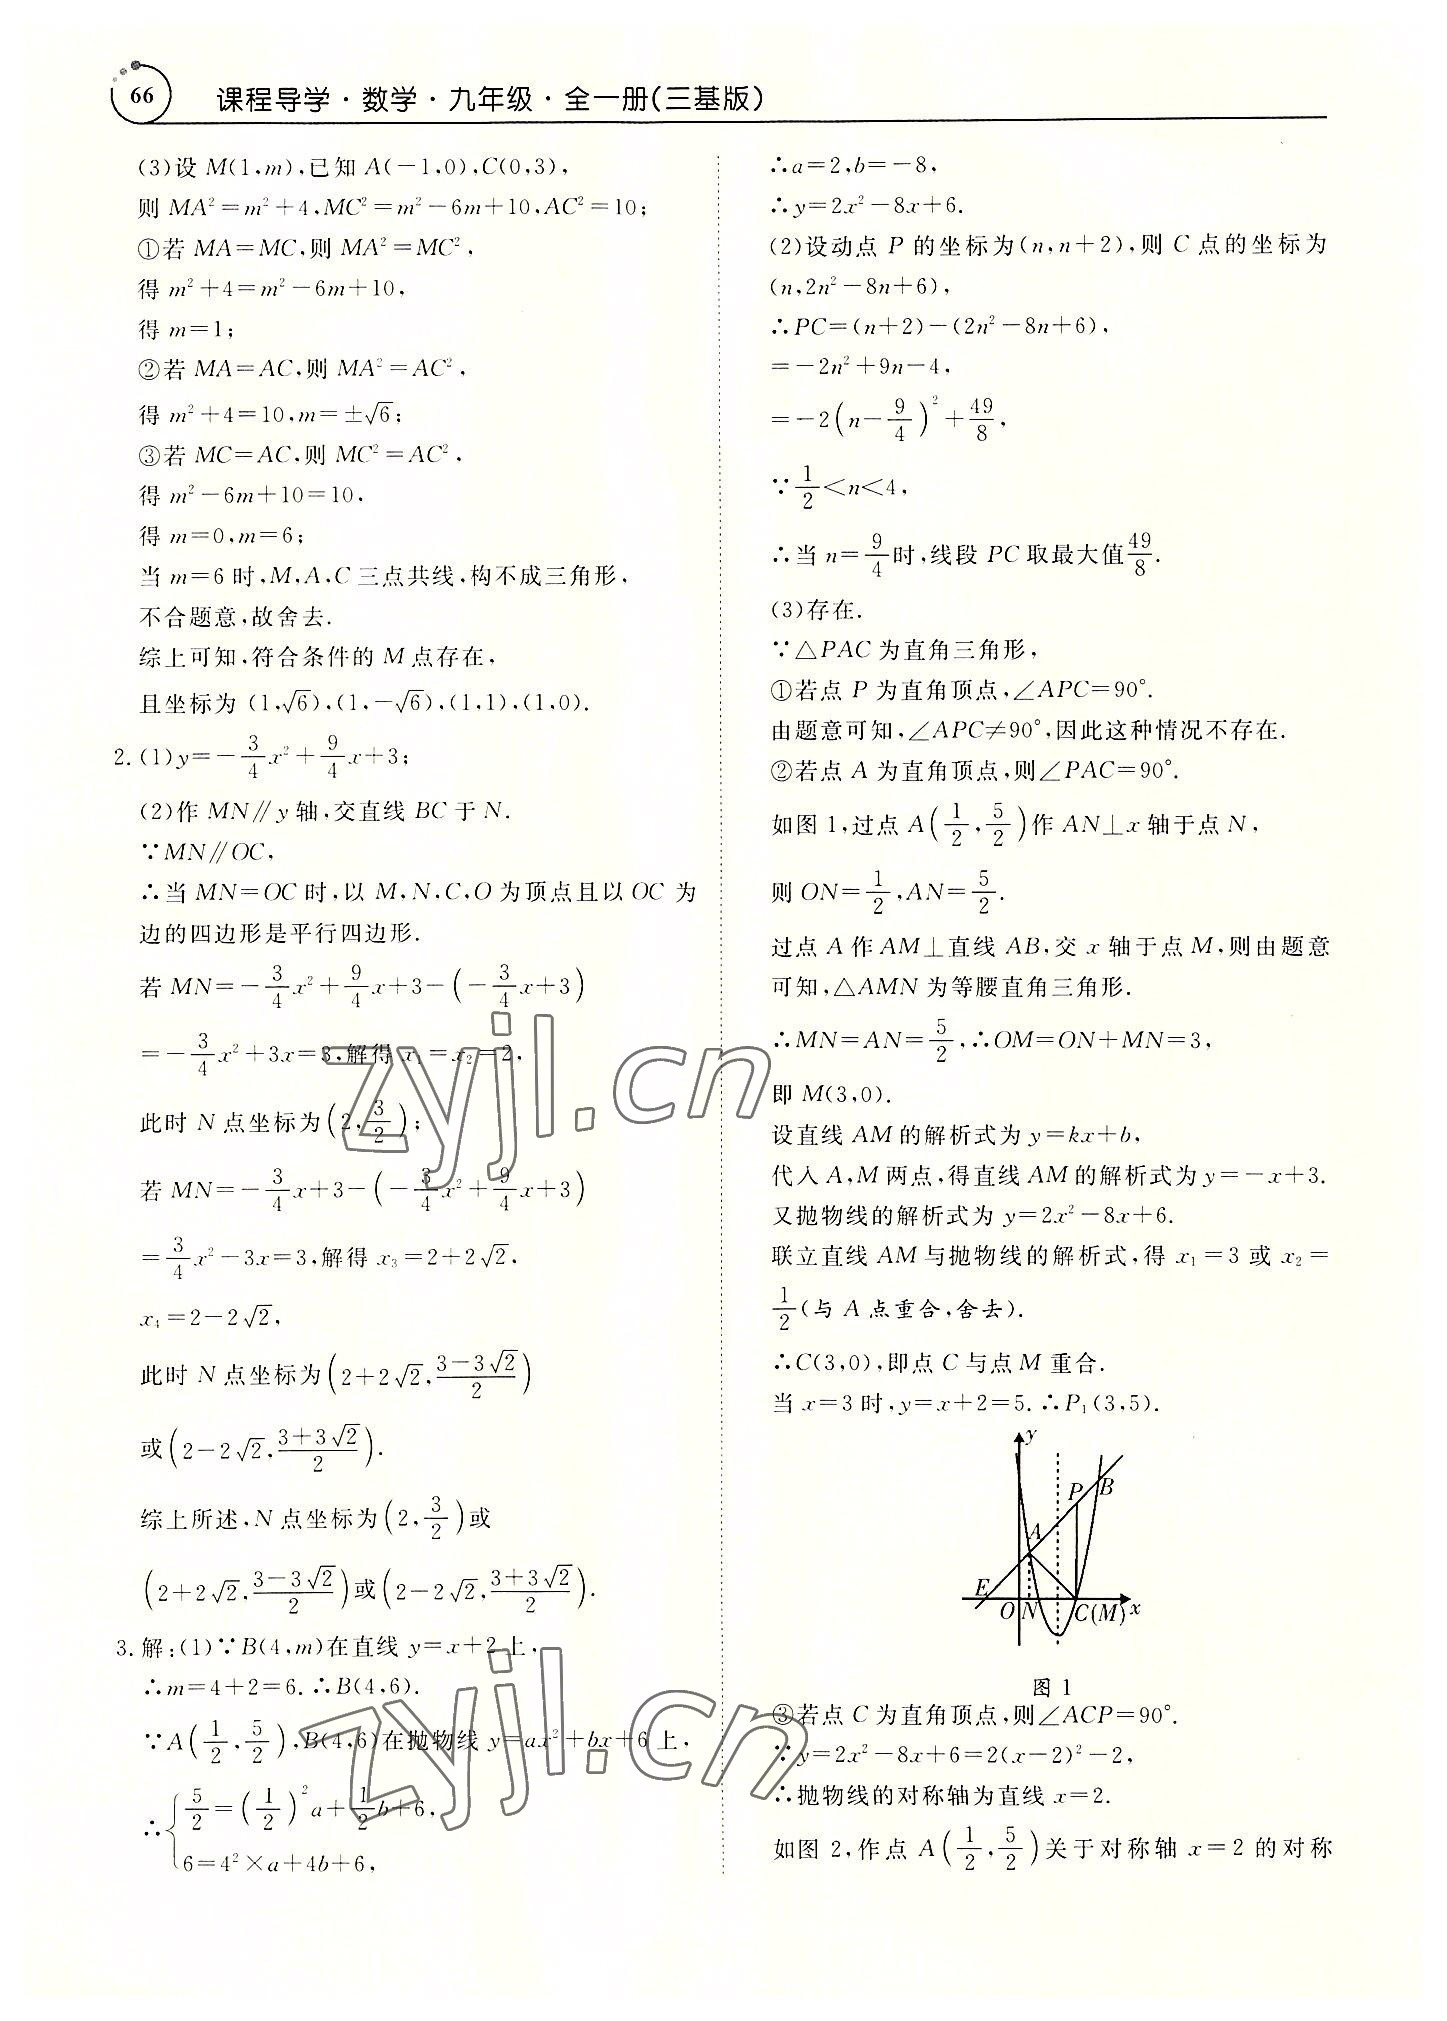 66
课程导学·数学·九年级·全一册(三基版)
(3)设 M(1,m),已知 A(-1,0),C(0,3),
则 MA²=m²+4,MC²=m²-6m+10,AC²=10;
①若 MA=MC,则 MA²=MC²,
得 m²+4=m²-6m+10,
得 m=1;
②若 MA=AC,则 MA²=AC²,
得 m²+4=10,m=±√6;
③若 MC=AC,则 MC²=AC²,
得 m²-6m+10=10,
得 m=0,m=6;
当 m=6 时,M,A,C 三点共线,构不成三角形,
不合题意,故舍去.
综上可知,符合条件的 M 点存在,
且坐标为 (1,√6),(1,-√6),(1,1),(1,0).
2.(1)y=-3/4x²+9/4x+3;
(2)作 MN∥y 轴,交直线 BC 于 N.
∵MN∥OC,
∴当 MN=OC 时,以 M,N,C,O 为顶点且以 OC 为
边的四边形是平行四边形.
若 MN=-3/4x²+9/4x+3-(-3/4x+3)
=-3/4x²+3x=3,解得 x₁=x₂=2,
此时 N 点坐标为(2,3/2);
若 MN=-3/4x+3-(-3/4x²+9/4x+3)
=3/4x²-3x=3,解得 x₃=2+2√2,
x₄=2-2√2,
此时 N 点坐标为(2+2√2,(3-3√2)/2)
或(2-2√2,(3+3√2)/2).
综上所述,N 点坐标为(2,3/2)或
(2+2√2,(3-3√2)/2)或(2-2√2,(3+3√2)/2).
3.解:(1)∵B(4,m)在直线 y=x+2 上,
∴m=4+2=6.∴B(4,6).
∵A(1/2,5/2),B(4,6)在抛物线 y=ax²+bx+6 上,
∴{5/2=(1/2)²a+1/2b+6,
6=4²×a+4b+6,
∴a=2,b=-8,
∴y=2x²-8x+6.
(2)设动点 P 的坐标为(n,n+2),则 C 点的坐标为
(n,2n²-8n+6),
∴PC=(n+2)-(2n²-8n+6),
=-2n²+9n-4,
=-2(n-9/4)²+49/8,
∵1/2<n<4,
∴当 n=9/4时,线段 PC 取最大值49/8.
(3)存在.
∵△PAC 为直角三角形,
①若点 P 为直角顶点,∠APC=90°.
由题意可知,∠APC≠90°,因此这种情况不存在.
②若点 A 为直角顶点,则∠PAC=90°.
如图 1,过点 A(1/2,5/2)作 AN⊥x 轴于点 N,
则 ON=1/2,AN=5/2.
过点 A 作 AM⊥直线 AB,交 x 轴于点 M,则由题意
可知,△AMN 为等腰直角三角形.
∴MN=AN=5/2,∴OM=ON+MN=3,
即 M(3,0).
设直线 AM 的解析式为 y=kx+b,
代入 A,M 两点,得直线 AM 的解析式为 y=-x+3.
又抛物线的解析式为 y=2x²-8x+6.
联立直线 AM 与抛物线的解析式,得 x₁=3 或 x₂=
1/2(与 A 点重合,舍去).
∴C(3,0),即点 C 与点 M 重合.
当 x=3 时,y=x+2=5.∴P₁(3,5).
y
P B
A
E
O N C(M) x
图 1
③若点 C 为直角顶点,则∠ACP=90°.
∵y=2x²-8x+6=2(x-2)²-2,
∴抛物线的对称轴为直线 x=2.
如图 2,作点 A(1/2,5/2)关于对称轴 x=2 的对称
zyjl.cn
zyjl.cn